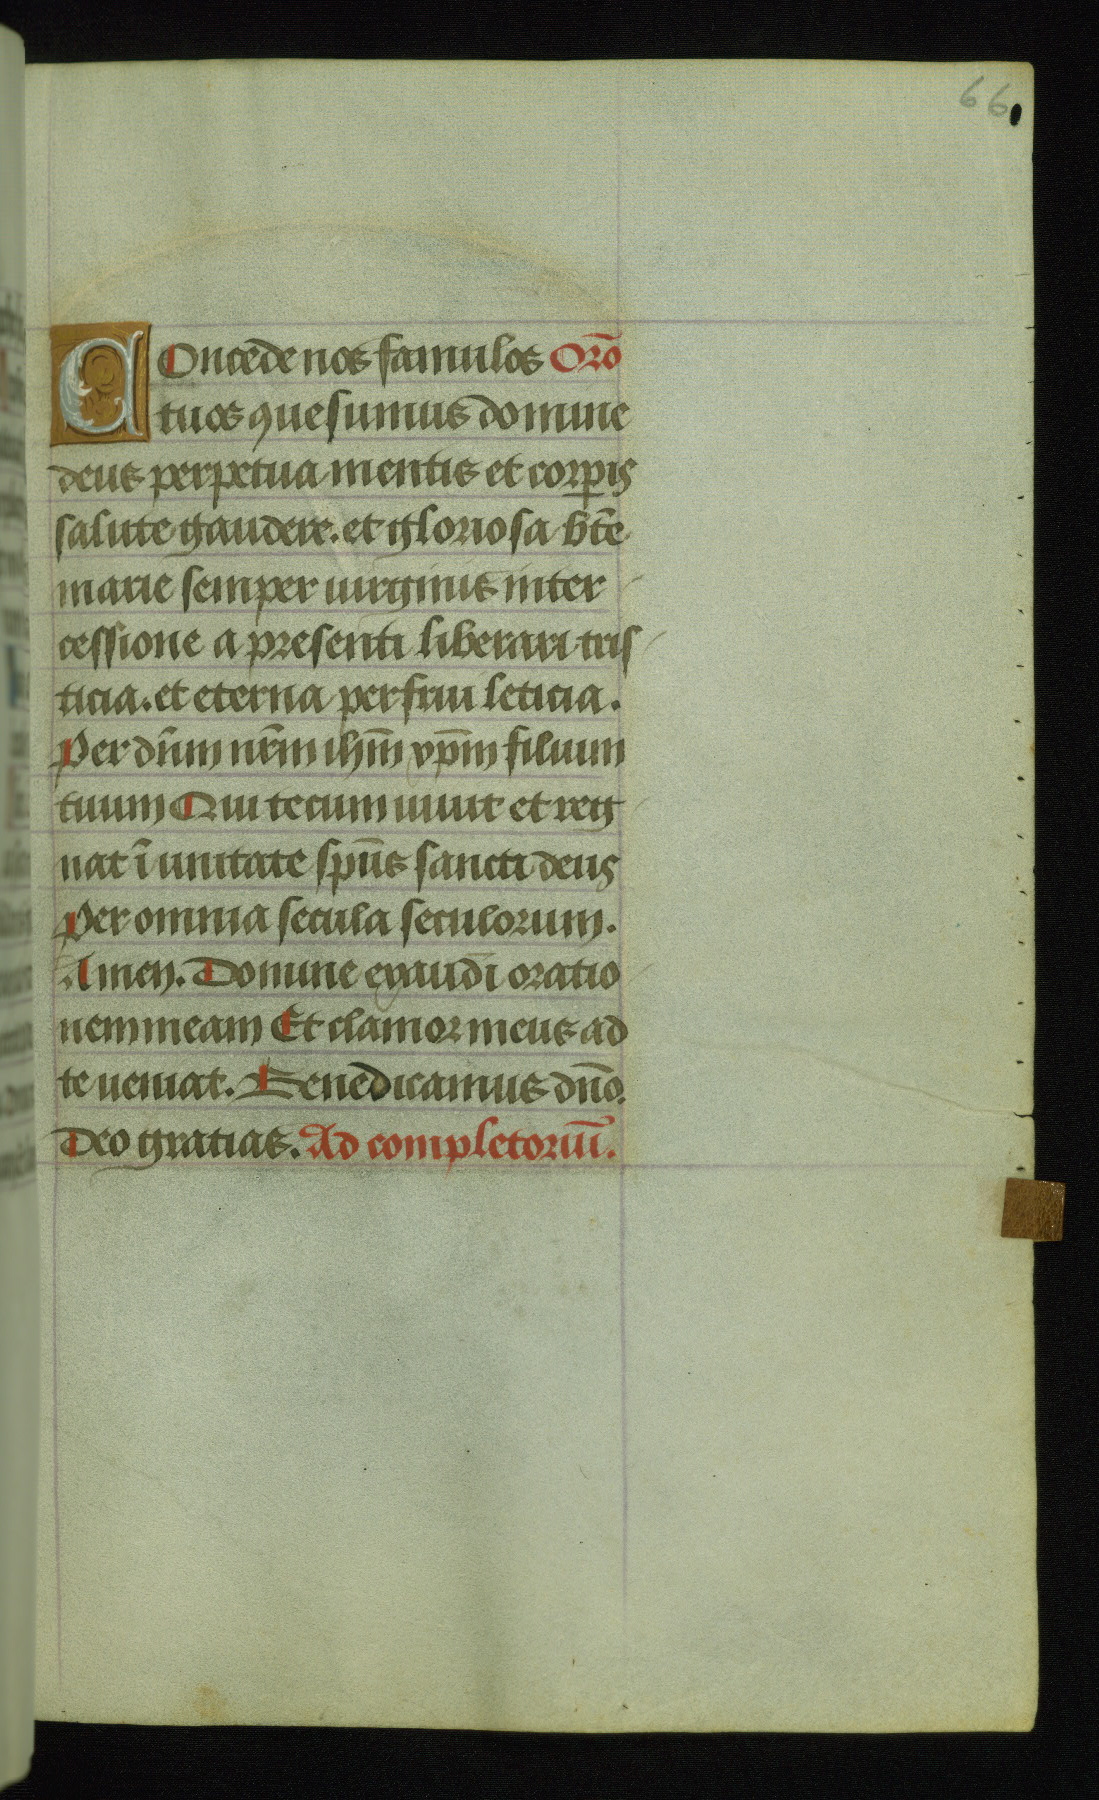 66
Concede nos famulos Orō
tuos quesumus domine
deus perpetua mentis et corꝑis
salute gaudere. et gloriosa bt̄e
marie semper uirginis inter
cessione a presenti liberari tris
ticia. et eterna perfrui leticia.
Per dn̄m nr̄m ihm̄ xp̄m filium
tuum Qui tecum uiuit et reg
nat ī unitate sp̄us sancti deus
Per omnia secula seculorum.
Amen. Domine exaudi oratio
nem meam Et clamor meus ad
te ueniat. Benedicamus dn̄o.
Deo gratias. Ad completoriū.